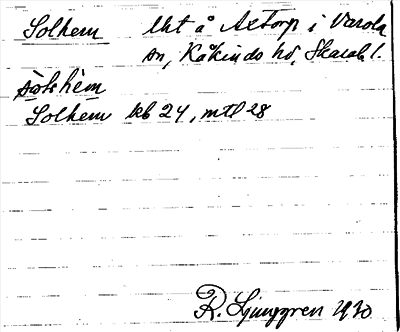 Solhem lht å Axtorp i Varola
sn, Kåkinds hd, Skarab l.
sòlshèm
Solhem kb 24, mtl 28
R. Ljunggren 1930